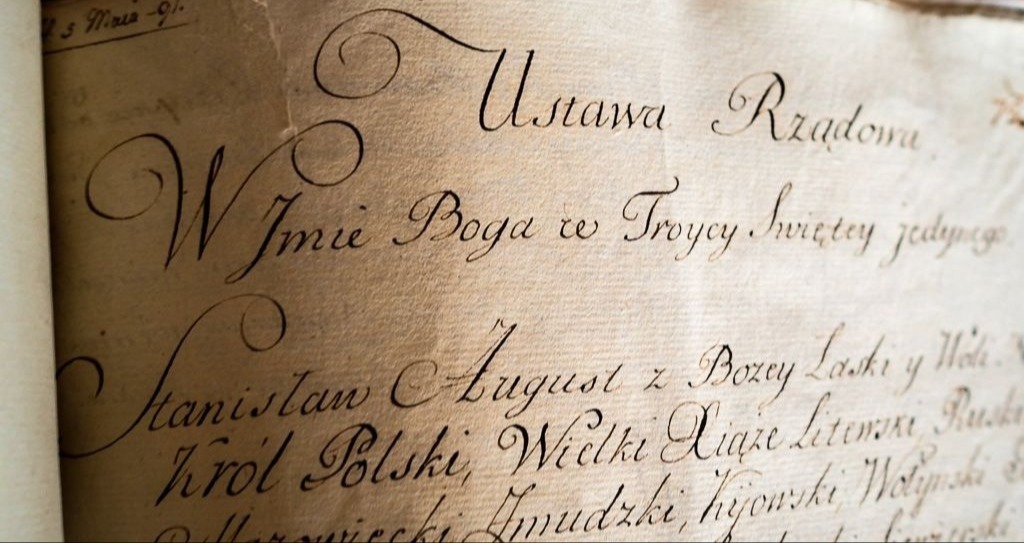 3 Maia 91.
Ustawa Rządowa
W Jmie Boga w Troycy Swiętey jedynego
Stanisław August z Bozey Łaski y Woli
Król Polski, Wielki Xiąże Litewski, Ruski
Mazowiecki, Żmudzki, Kijowski, Wołynski